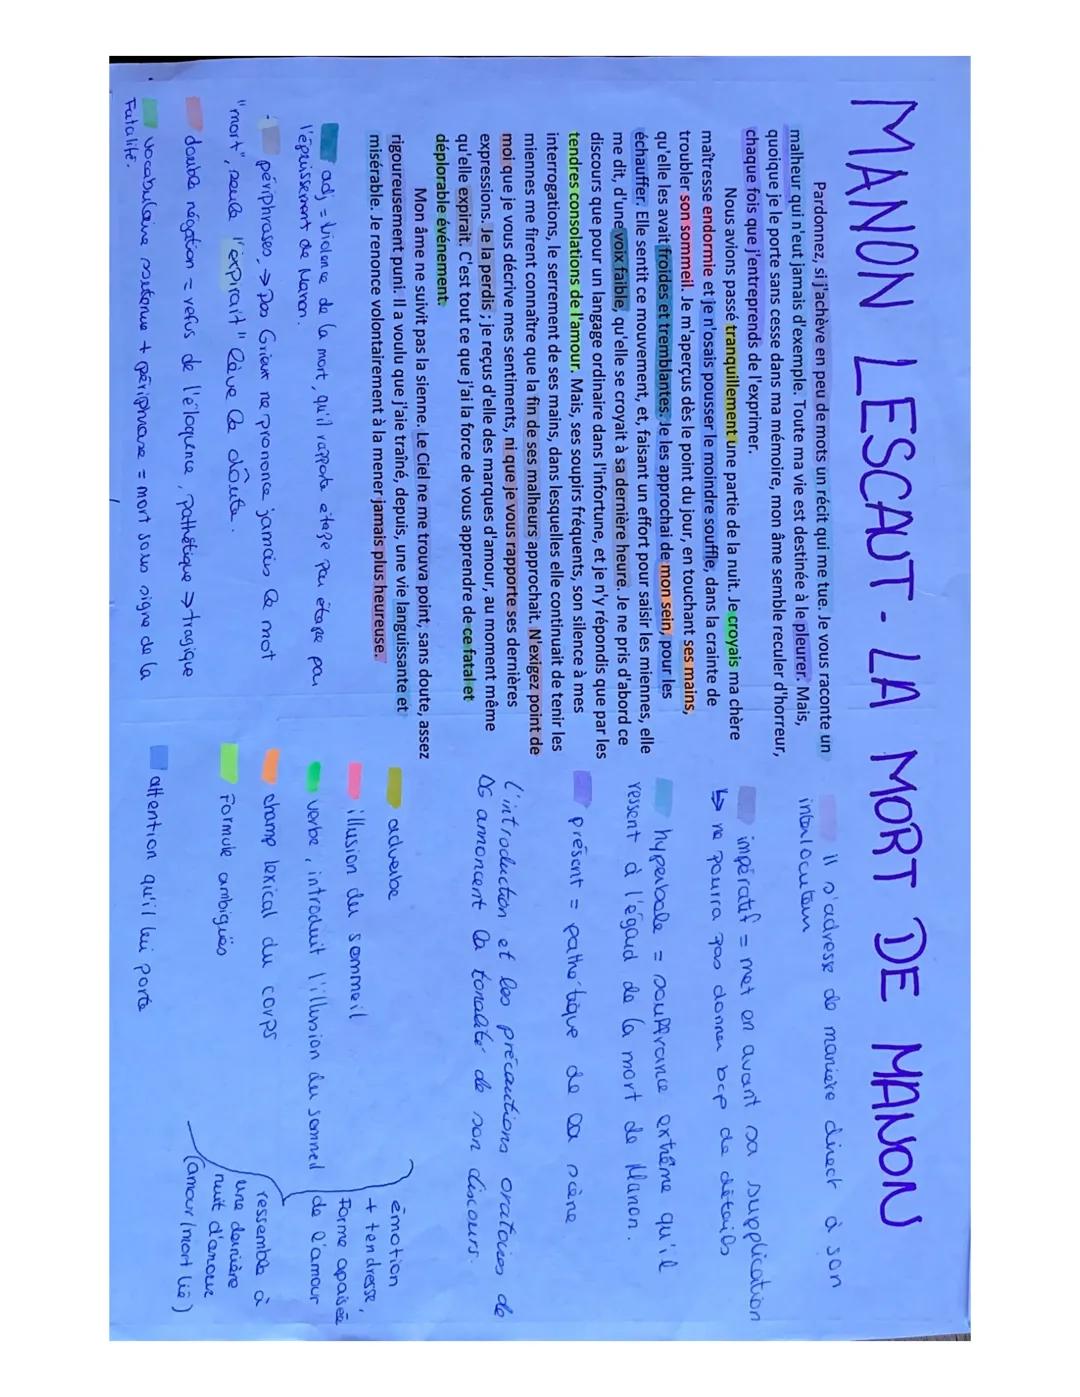 MANON LESCAUT - LA MORT DE MANON
Pardonnez, si j'achève en peu de mots un récit qui me tue. Je vous raconte un
malheur qui n'eut jamais d'exemple. Toute ma vie est destinée à le pleurer. Mais,
quoique je le porte sans cesse dans ma mémoire, mon âme semble reculer d'horreur,
chaque fois que j'entreprends de l'exprimer.
Nous avions passé tranquillement une partie de la nuit. Je croyais ma chère
maîtresse endormie et je n'osais pousser le moindre souffle, dans la crainte de
troubler son sommeil. Je m'aperçus dès le point du jour, en touchant ses mains,
qu'elle les avait froides et tremblantes. Je les approchai de mon sein, pour les
échauffer. Elle sentit ce mouvement, et, faisant un effort pour saisir les miennes, elle
me dit, d'une voix faible, qu'elle se croyait à sa dernière heure. Je ne pris d'abord ce
discours que pour un langage ordinaire dans l'infortune, et je n'y répondis que par les
tendres consolations de l'amour. Mais, ses soupirs fréquents, son silence à mes
interrogations, le serrement de ses mains, dans lesquelles elle continuait de tenir les
miennes me firent connaître que la fin de ses malheurs approchait. N'exigez point de
moi que je vous décrive mes sentiments, ni que je vous rapporte ses dernières
expressions. Je la perdis ; je reçus d'elle des marques d'amour, au moment même
qu'elle expirait. C'est tout ce que j'ai la force de vous apprendre de ce fatal et
déplorable événement.
Mon âme ne suivit pas la sienne. Le Ciel ne me trouva point, sans doute, assez
rigoureusement puni. Il a voulu que j'aie traîné, depuis, une vie languissante et
misérable. Je renonce volontairement à la mener jamais plus heureuse.
adj = violence de la mort, qu'il rapporte étape par étape par
l'épuisement de Manon.
- périphrases, → Des Grieux ne prononce jamais le mot
"mort", seule l'"expirait" lève le doute.
double négation = refus de l'éloquence, pathétique → tragique
vocabulaire soutenue + périphrase = mort sous signe de la
Fatalité.
il s'adresse de manière direct à son
interlocuteur
impératif = met en avant sa supplication
↳ ne pourra pas donner bcp de détails
hyperbole = souffrance extrême qu'il
ressent à l'égard de la mort de Manon.
présent = pathétique de la scène
L'introduction et les précautions oratoires de
DG annoncent la tonalité de son discours.
adverbe
illusion du sommeil
verbe, introduit l'illusion du sommeil
champ lexical du corps
Formule ambiguës
attention qu'il lui porte
émotion
+ tendresse,
Forme apaisée
de l'amour
ressemble à
une dernière
nuit d'amour
(amour/mort lié)